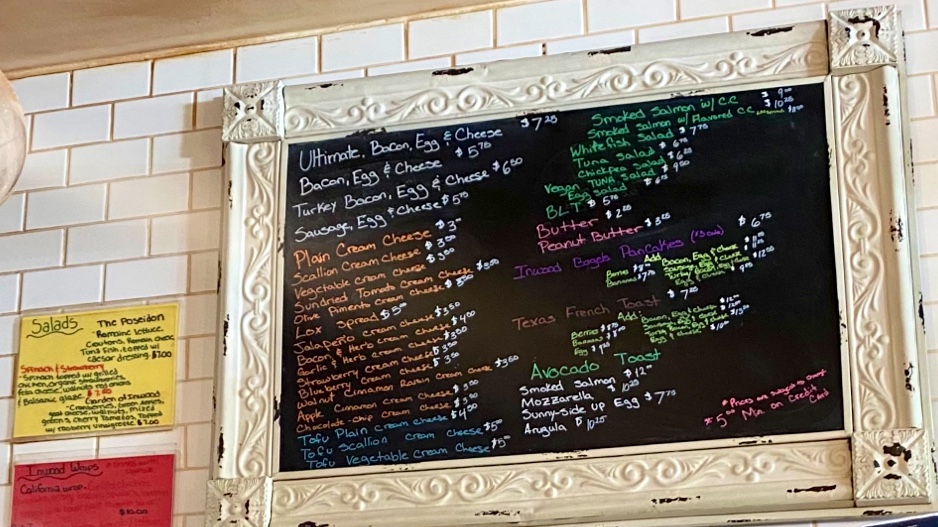 Ultimate, Bacon, Egg & Cheese $7.25
Bacon, Egg & Cheese $5.75
Turkey Bacon, Egg & Cheese $6.00
Sausage, Egg & Cheese $5.75
Plain Cream Cheese $3.00
Scallion Cream cheese $3.50
Vegetable cream cheese $3.00
Sundried Tomato Cream cheese $3.50
Olive Pimento cream cheese $3.50
Lox Spread $5.00
Jalapeño cream cheese $3.50
Bacon & Herb cream cheese $4.00
Garlic & Herb cream cheese $3.50
Strawberry cream cheese $3.50
Blueberry cream cheese $3.50
Walnut Cinnamon Raisin cream cheese $3.50
Apple Cinnamon cream cheese $3.50
Chocolate-chip cream cheese $3.50
Tofu Plain Cream cheese $4.00
Tofu Scallion Cream cheese $5.00
Tofu Vegetable Cream Cheese $5
Smoked Salmon w/ C.C $9.00
Smoked Salmon w/ Flavored C.C. $10.25
Whitefish Salad $7.75
Tuna Salad $6.75
Chickpea Salad $6.25
Vegan TUNA Salad $9.00
Egg Salad
BLT $5.75
Butter $2.25
Peanut Butter $3.25
Inwood Bagels Pancakes $6.75
Add
Bacon, Egg & cheese
Sausage, Egg & cheese
Berries
Bananas
Texas French Toast $7.25
Add
Bacon, Egg & cheese
Berries
Bananas
Egg
Avocado Toast
Smoked Salmon $12
Mozzarella 10.25
Sunny-side up Egg $7.75
Arugula $10.25
*Prices are subject to change
*5.00 Min. on Credit Card
Salads
The Poseidon
Romaine lettuce,
Croutons, Parmesan cheese,
Tuna Fish, topped w/
caesar dressing $7.00
Spinach & Strawberry
Spinach topped w/ grilled
chicken, organic strawberries,
feta cheese, walnuts, red onions
& Balsamic glaze.
Garden of Inwood
goat cheese, walnuts, mixed
greens, cherry Tomatoes, Topped
w/ raspberry vinaigrette $7.00
Inwood Wraps
California wrap
$10.00